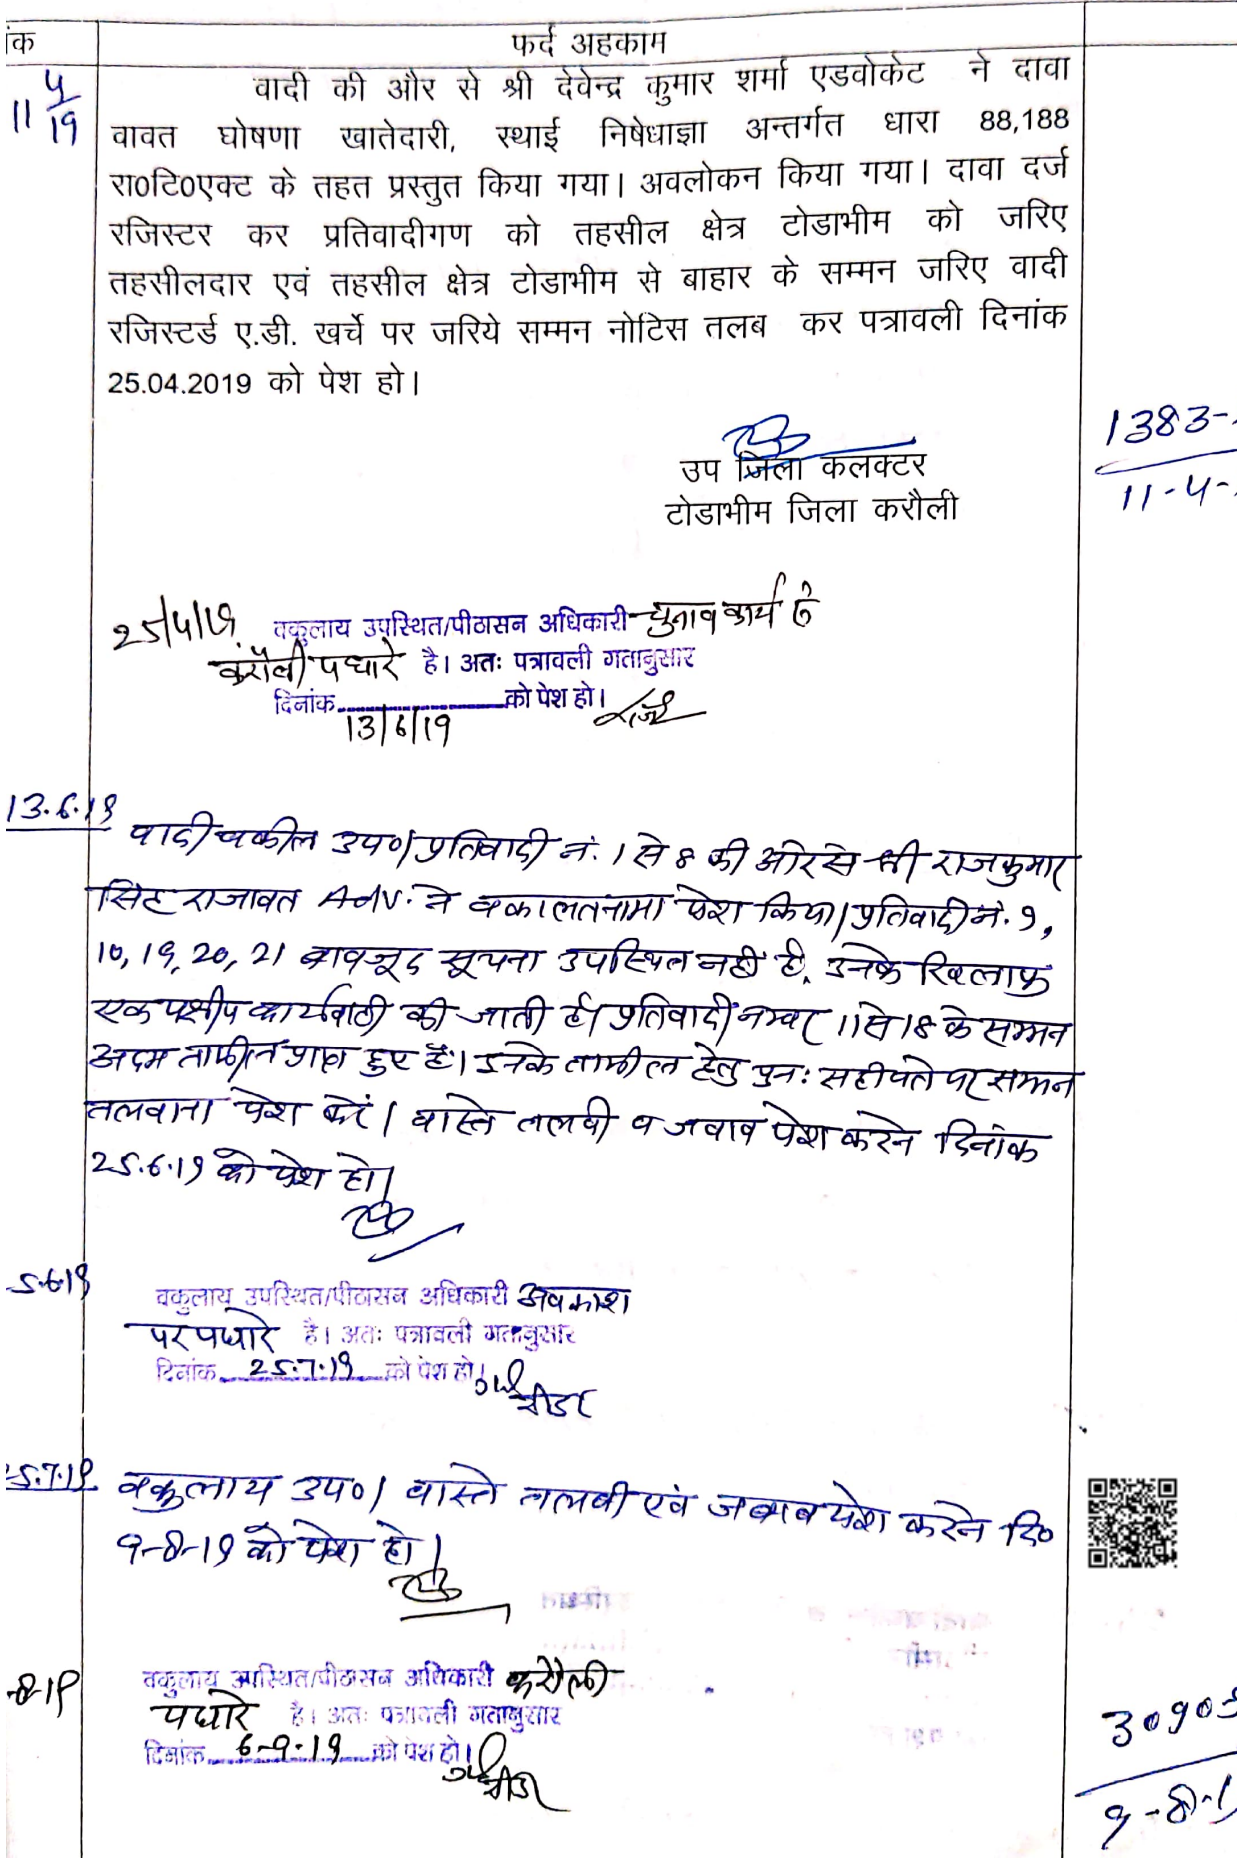 फर्द अहकाम
11 4/19
वादी की और से श्री देवेन्द्र कुमार शर्मा एडवोकेट ने दावा
वावत घोषणा खातेदारी, स्थाई निषेधाज्ञा अन्तर्गत धारा 88,188
रा0टि0एक्ट के तहत प्रस्तुत किया गया। अवलोकन किया गया। दावा दर्ज
रजिस्टर कर प्रतिवादीगण को तहसील क्षेत्र टोडाभीम को जरिए
तहसीलदार एवं तहसील क्षेत्र टोडाभीम से बाहार के सम्मन जरिए वादी
रजिस्टर्ड ए.डी. खर्चे पर जरिये सम्मन नोटिस तलब कर पत्रावली दिनांक
25.04.2019 को पेश हो।
उप जिला कलक्टर
टोडाभीम जिला करौली
1383-
11-4-
25/4/19 वकुलाय उपस्थित/पीठासन अधिकारी चुनाव कार्य से
करौली पधारे है। अतः पत्रावली गतानुसार
दिनांक 13/6/19 को पेश हो।
13.6.19
वादी वकील उप०। प्रतिवादी नं. 1 से 8 की ओर से श्री राजकुमार
सिंह राजावत Adv. ने वकालतनामा पेश किया। प्रतिवादी नं. 9,
10, 19, 20, 21 बावजूद सूचना उपस्थित नहीं है. उनके खिलाफ
एक पक्षीय कार्यवाही की जाती है। प्रतिवादी नम्बर 11 से 18 के सम्मन
अदम तामील प्राप्त हुए हैं। उनके तामील हेतु पुनः सही पते पर सम्मन
तलवाना पेश करें। वास्ते तलवी व जवाव पेश करने दिनांक
25.6.19 को पेश हो।
5.6.19 वकुलाय उपस्थित/पीठासन अधिकारी अवकाश
पर पधारे है। अतः पत्रावली गतानुसार
दिनांक 25.7.19 को पेश हो।
रीडर
25.7.19 वकुलाय उप०। वास्ते तलवी एवं जवाव पेश करने दि०
9-8-19 को पेश हो।
-8-19 वकुलाय उपस्थित/पीठासन अधिकारी करौली
पधारे है। अतः पत्रावली गतानुसार
दिनांक 6-9-19 को पेश हो।
रीडर
3090
9-8-1